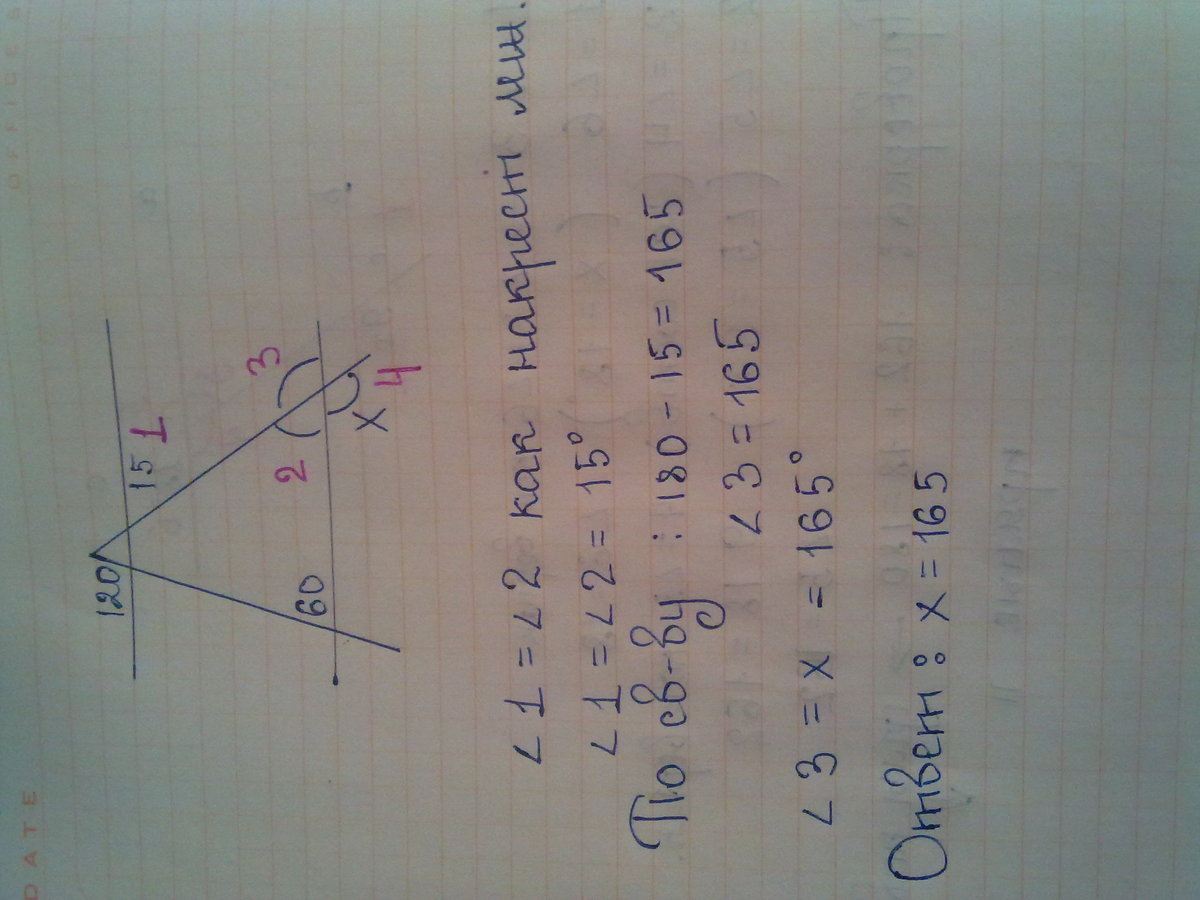 DATE
OFFICE
120
15
1
60
2
3
x
4
∠1=∠2 как накрест ми.
∠1=∠2=15°
По св-ву : 180-15=165
∠3=165
∠3=x=165°
Ответ: x=165